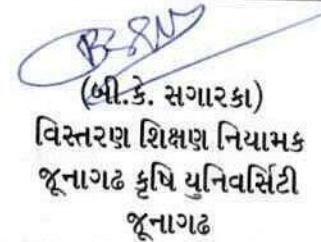 (બી.કે. સગારકા)
વિસ્તરણ શિક્ષણ નિયામક
જૂનાગઢ કૃષિ યુનિવર્સિટી
જૂનાગઢ